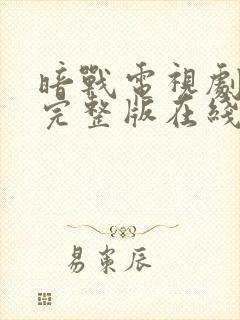 暗戰電視劇
完整版在綫
易宷辰